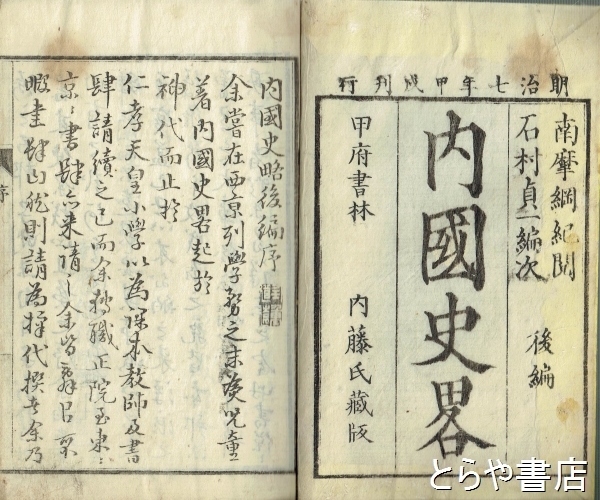 明治七年甲戌刊行
南摩綱紀閲
石村貞一編次
後編
内國史畧
甲府書林
内藤氏藏版
内國史略後編序
余嘗在西京列學務之末為児童
著内國史畧起於
神代而止於
仁孝天皇小學以為課本教師及書
肆請續之已而余轉職正院至東
京書肆亦来請之余皆辭以不
暇書肆山
則請為擇代撰者余乃
序
とらや書店